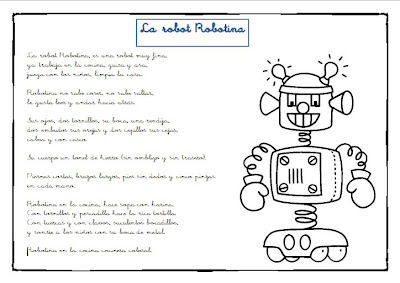 La robot Robotina
La robot Robotina, es una robot muy fina,
ya trabaja en la cocina, guisa y asa,
juega con los niños, limpia la casa.
Robotina no sabe coser, no sabe saltar,
le gusta leer y andar hacia atrás.
Sus ojos, dos tornillos, su boca, una rendija,
dos embudos sus orejas y dos cepillos sus cejas,
cabeza y con casco.
Su cuerpo un tonel de hierro (sin ombligo y sin trasero).
Piernas cortas, brazos largos, pies sin dedos y cinco
en cada mano.
Robotina en la cocina, hace sopa con harina.
Con tornillos y pescadilla hace la rica tortilla.
Con tuercas y con clavos, suculentos bocadillos,
y sonríe a los niños con su boca de metal.
Robotina en la cocina cocinera colosal.